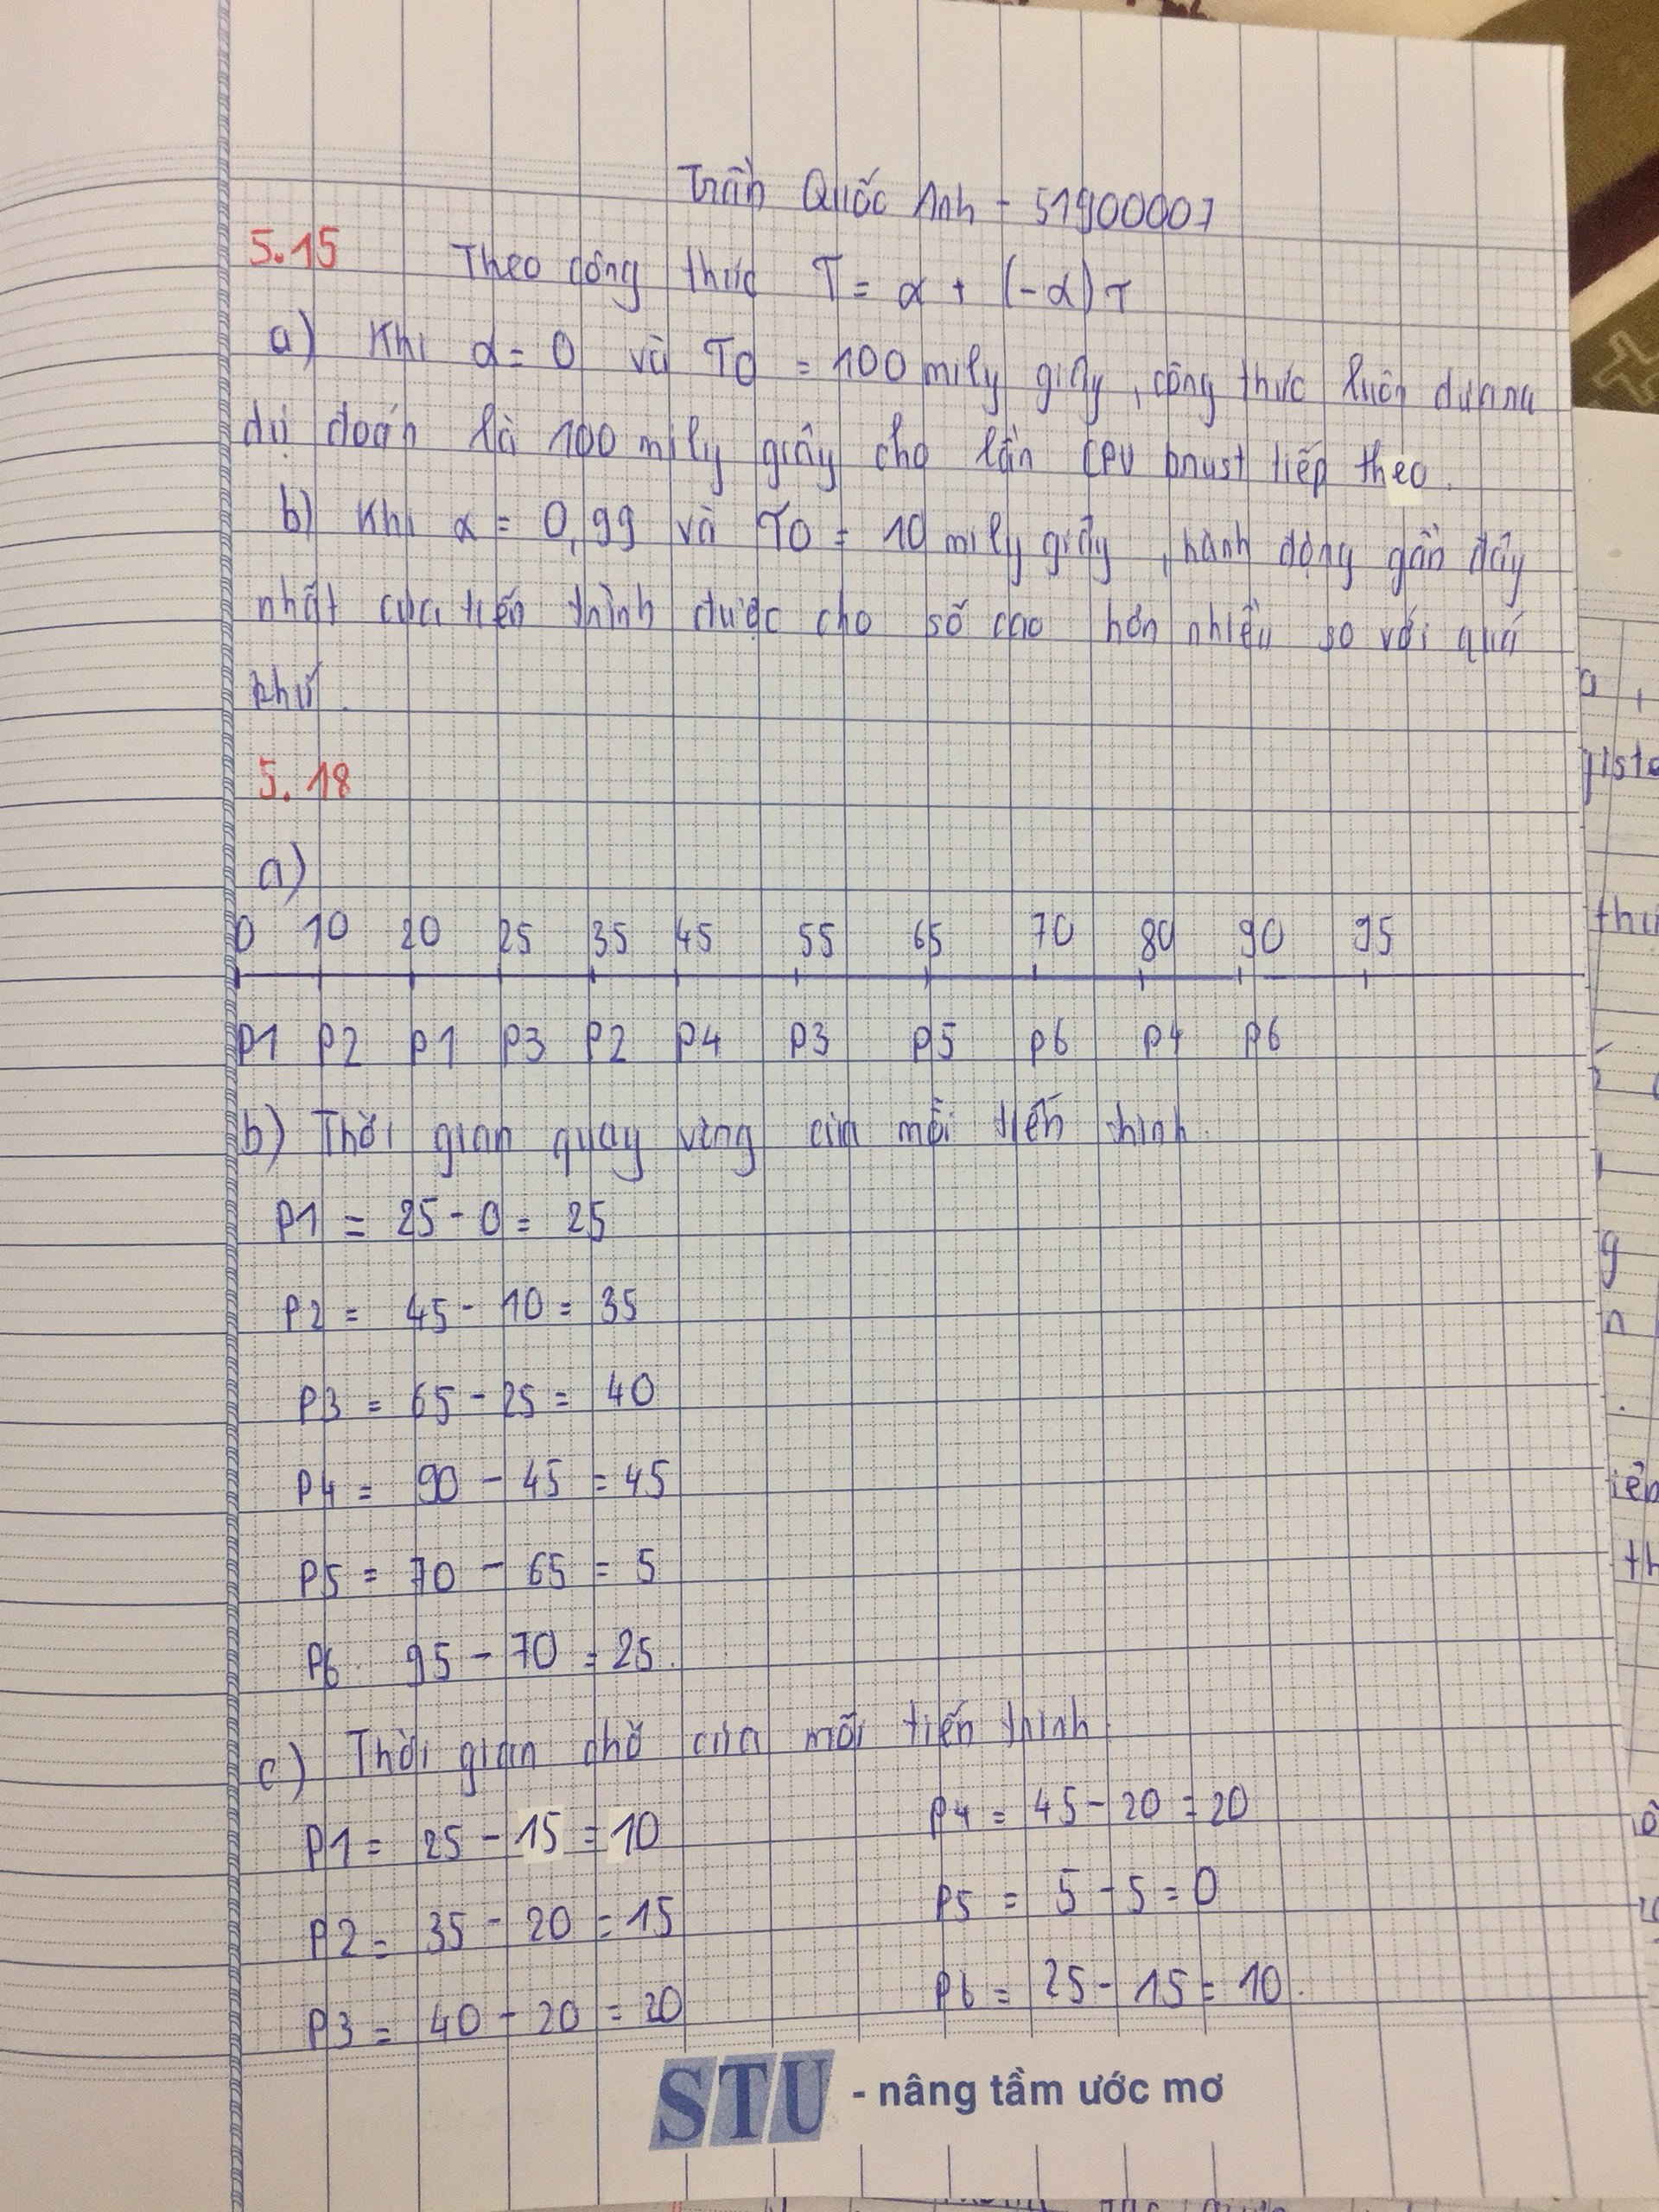 Trần Quốc Anh - 51900007
5.15 Theo công thức T = α + (-α)τ
a) Khi α = 0 và T0 = 100 mily giây, công thức luôn đưa
dự đoán là 100 mily giây cho lần CPU bnust tiếp theo.
b) Khi α = 0,99 và T0 = 10 mily giây, hành động gần đây
nhất của tiến thình được cho số cao hơn nhiều so với quá
khứ.
5.18
a)
0 10 20 25 35 45 55 65 70 80 90 95
P1 P2 P1 P3 P2 P4 P3 P5 P6 P4 P6
b) Thời gian quay vòng của mỗi tiến thình.
P1 = 25 - 0 = 25
P2 = 45 - 10 = 35
P3 = 65 - 25 = 40
P4 = 90 - 45 = 45
P5 = 70 - 65 = 5
P6 95 - 70 = 25.
c) Thời gian chờ của mỗi tiến thình
P1 = 25 - 15 = 10
P2 = 35 - 20 = 15
P3 = 40 - 20 = 20
P4 = 45 - 20 = 20
P5 = 5 - 5 = 0
P6 = 25 - 15 = 10.
STU - nâng tầm ước mơ